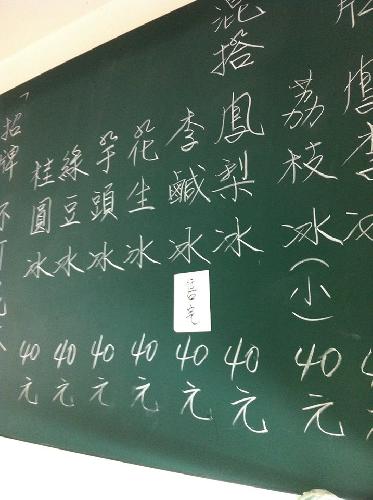 荔枝冰(小)40元
混搭鳳梨冰40元
李鹹冰40元
花生冰40元
芋頭冰40元
綠豆冰40元
桂圓冰40元
「招牌